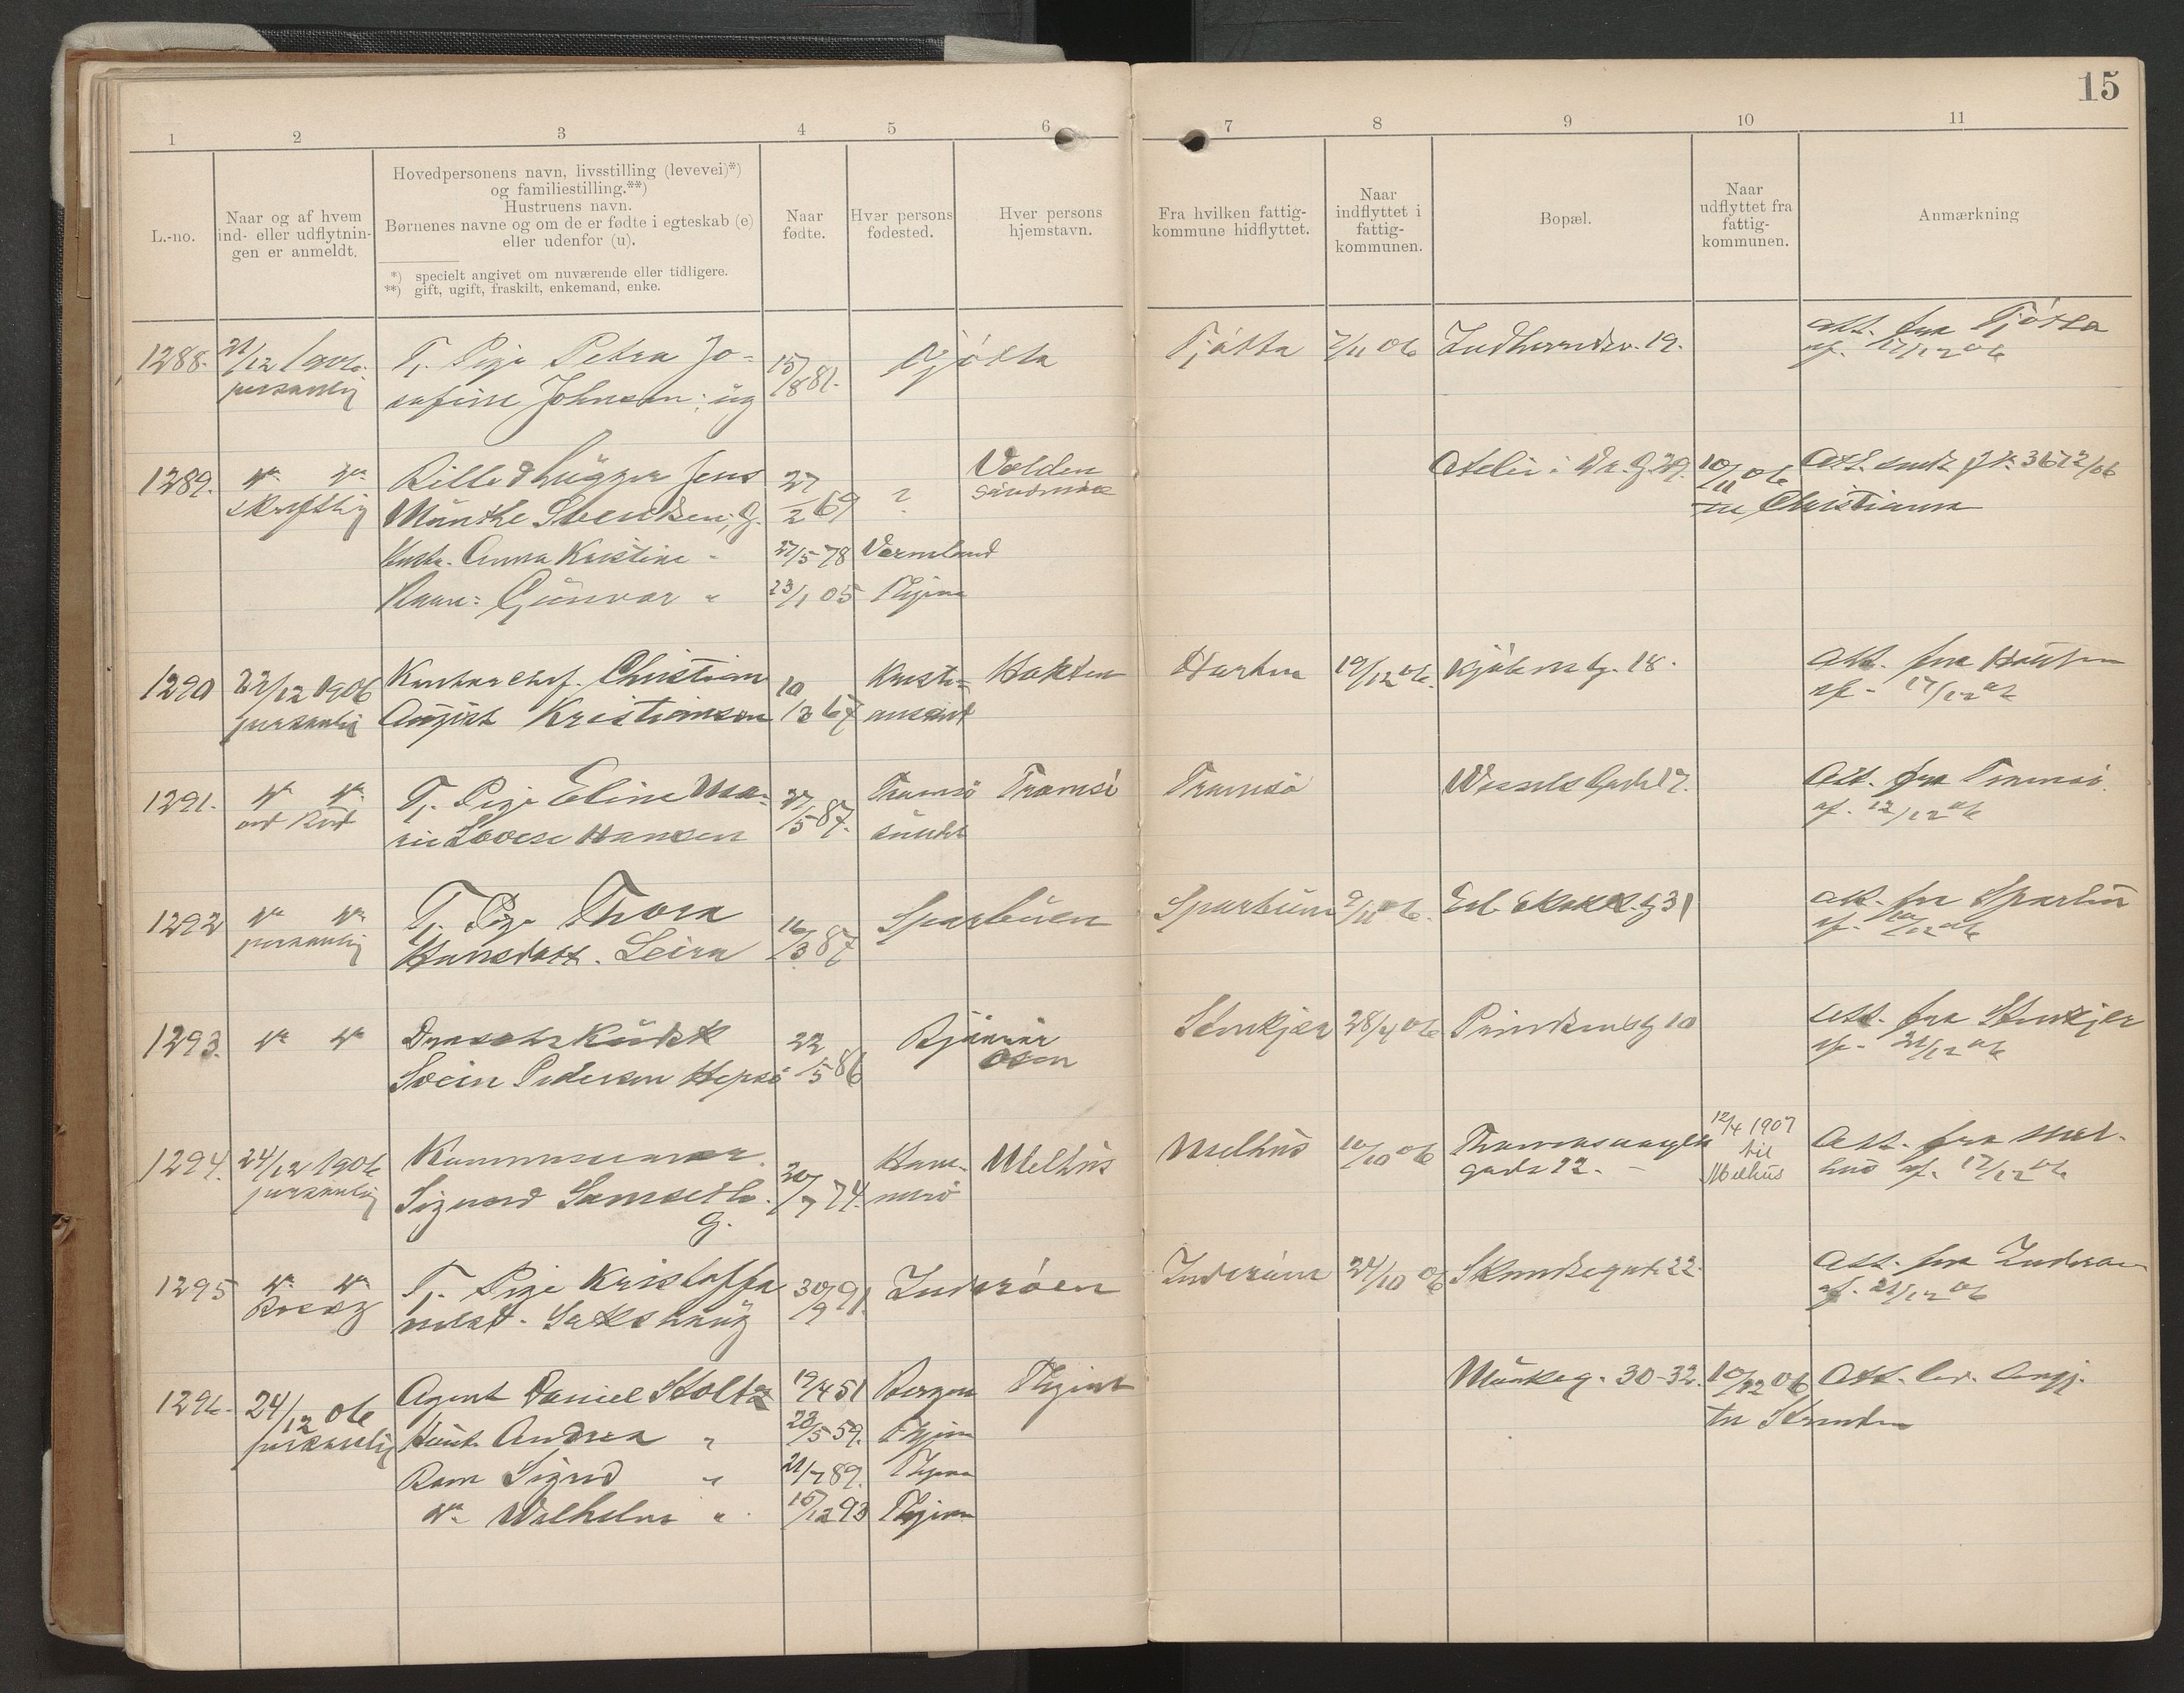 15
1 2 3 4 5 6 7 8 9 10 11
L.-no.
Naar og af hvem
ind- eller udflytnin-
gen er anmeldt.
Hovedpersonens navn, livsstilling (levevei)*)
og familiestilling.**)
Hustruens navn.
Børnenes navne og om de er fødte i egteskab (e)
eller udenfor (u).
*) specielt angivet om nuværende eller tidligere.
**) gift, ugift, fraskilt, enkemand, enke.
Naar
fødte.
Hver persons
fødested.
Hver persons
hjemstavn.
Fra hvilken fattig-
kommune hidflyttet.
Naar
indflyttet i
fattig-
kommunen.
Bopæl.
Naar
udflyttet fra
fattig-
kommunen.
Anmærkning
1288. 21/12 1906 T. Pige Petra Jo- 15/8 81. Tjøtta Tjøtta 7/11 06 Indherredsv. 19. att. fra Tjøtta
personlig sefine Johnsen; ug af. 17/12 06
1289. do do Billedhugger Jens 27/2 69 ? Volden Atelier i 10/11 06 Att. 3672/06
skriftlig Munthe Svendsen; G. Søndmøre til Christiania
Hustr. Anna Kristine " 27/5 78 Vermland
Barn: Gunvor " 23/1 05 Thjem
1290 22/12 1906 Christian 10/3 67 Kristi- Harten 19/12 06. Kjøbm.g. 18. Att. fra
personlig August Kristiansen ansand af. 17/12 06
1291. do do T. Pige Eline Ma- 27/5 87. Tromsø Tromsø Tromsø Wessels Gade 17. Att. fra Tromsø.
ved Bud rie Lovise Hansen sundet af. 12/12 06
1292 do do T. Pige Thora 16/3 87 Sparbuen Sparbuen 9/11 06. Erl. Skakk. g 31 att. fra Sparbu
personlig Hansdatt. Leira af. 10/12 06
1293. do do 22/5 86 Bjørnør Stenkjer 28/4 06 Prindsensg 10 Att. fra Stenkjer
Svein Pedersen Hepsø Osen af. 21/12 06
1294. 24/12 1906 20/7 74. Ham- Melhus Melhus 10/10 06 Thomasangels 12/4 1907 Att. fra Mel-
personlig Sigvard Samseth. merø gade 22. – til hus af. 17/12 06
G. Melhus
1295 do do T. Pige Kristoffa 30/9 91. Inderøen Inderøen 24/10 06 Att. fra Inderøen
Sakshaug af. 21/12 06
1296. 24/12 06 Agent Daniel Stoltz 19/4 51 Bergen Thjem Munkeg. 30-32. 10/12 06 Att.
personlig Hust. Andrea " 23/5 59. Thjem til Strinden
Barn Sigrid " 21/7 89. Thjem
do Wilhelm " 15/12 93 Thjem